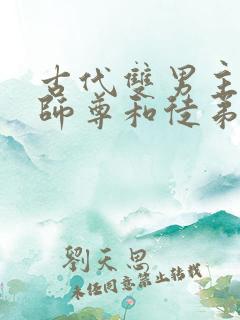 古代雙男主
師尊和徒弟
劉天恩
未经同意禁止转载